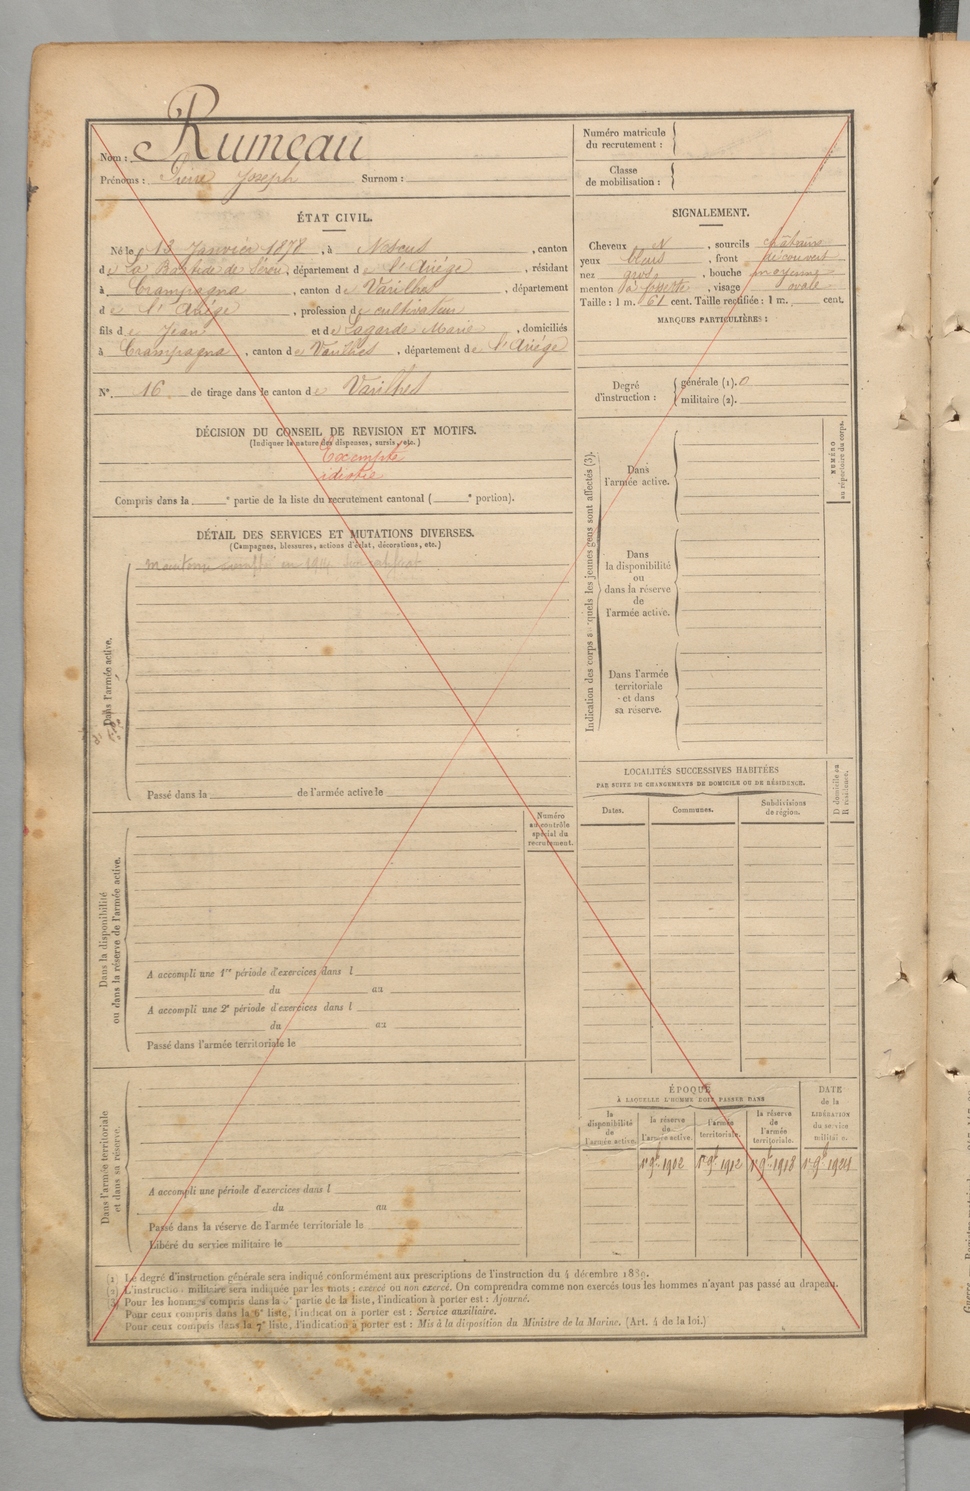 Nom : Rumeau
Prénoms : Pierre Joseph Surnom :
ÉTAT CIVIL.
Né le 13 Janvier 1878, à Nescus, canton
de La Bastide de Sérou, département de l'Ariège, résidant
à Crampagna, canton de Varilhes, département
de l'Ariège, profession de cultivateur
fils de Jean et de Lagarde Marie, domiciliés
à Crampagna, canton de Varilhes, département de l'Ariège
N° 16 de tirage dans le canton de Varilhes
DÉCISION DU CONSEIL DE REVISION ET MOTIFS.
(Indiquer la nature des dispenses, sursis, etc.)
Exempté
Compris dans la e partie de la liste du recrutement cantonal ( e portion).
DÉTAIL DES SERVICES ET MUTATIONS DIVERSES.
(Campagnes, blessures, actions d'éclat, décorations, etc.)
Dans l'armée active.
Passé dans la de l'armée active le
Numéro
au contrôle
spécial du
recrutement.
Dans la disponibilité
ou dans la réserve de l'armée active.
A accompli une 1re période d'exercices dans l
du au
A accompli une 2e période d'exercices dans l
du au
Passé dans l'armée territoriale le
Dans l'armée territoriale
et dans sa réserve.
A accompli une période d'exercices dans l
du au
Passé dans la réserve de l'armée territoriale le
Libéré du service militaire le
Numéro matricule
du recrutement :
Classe
de mobilisation :
SIGNALEMENT.
Cheveux N, sourcils châtains
yeux bleus, front découvert
nez gros, bouche moyenne
menton à fossette, visage ovale
Taille : 1 m. 61 cent. Taille rectifiée : 1 m. cent.
MARQUES PARTICULIÈRES :
Degré
d'instruction :
générale (1). 0
militaire (2).
Indication des corps auxquels les jeunes gens sont affectés (3).
NUMÉRO
au répertoire du corps.
Dans
l'armée active.
Dans
la disponibilité
ou
dans la réserve
de
l'armée active.
Dans l'armée
territoriale
et dans
sa réserve.
LOCALITÉS SUCCESSIVES HABITÉES
PAR SUITE DE CHANGEMENTS DE DOMICILE OU DE RÉSIDENCE.
Dates. Communes. Subdivisions
de région.
D domicile ou
R résidence.
ÉPOQUE
À LAQUELLE L'HOMME DOIT PASSER DANS
DATE
de la
LIBÉRATION
du service
militaire.
la
disponibilité
de
l'armée active.
la réserve
de
l'armée active.
l'armée
territoriale.
la réserve
de
l'armée
territoriale.
1er 9bre 1902 1er 9bre 1912 1er 9bre 1918 1er 9bre 1924
(1) Le degré d'instruction générale sera indiqué conformément aux prescriptions de l'instruction du 4 décembre 1889.
(2) L'instruction militaire sera indiquée par les mots : exercé ou non exercé. On comprendra comme non exercés tous les hommes n'ayant pas passé au drapeau.
(3) Pour les hommes compris dans la 5e partie de la liste, l'indication à porter est : Ajourné.
Pour ceux compris dans la 6e liste, l'indication à porter est : Service auxiliaire.
Pour ceux compris dans la 7e liste, l'indication à porter est : Mis à la disposition du Ministre de la Marine. (Art. 4 de la loi.)